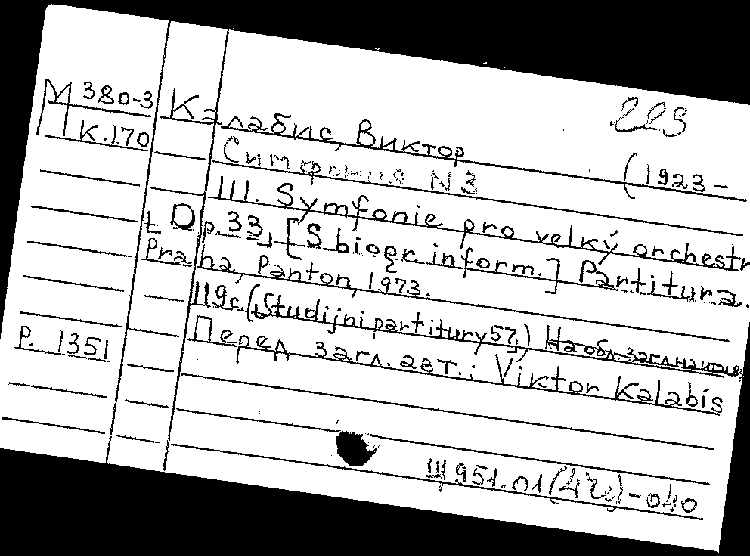 223
М 380-3
К.170
Калабис, Виктор
(1923-
Симфония N 3
III. Symfonie pro velký orchestr
Op. 33, [S biogr. inform.] Partitura.
Praha, Panton, 1973.
119с. (Studijni partitury 57)
Перед загл. авт.: Viktor Kalabis
Р. 1351
Щ 951.01(4Че)-040